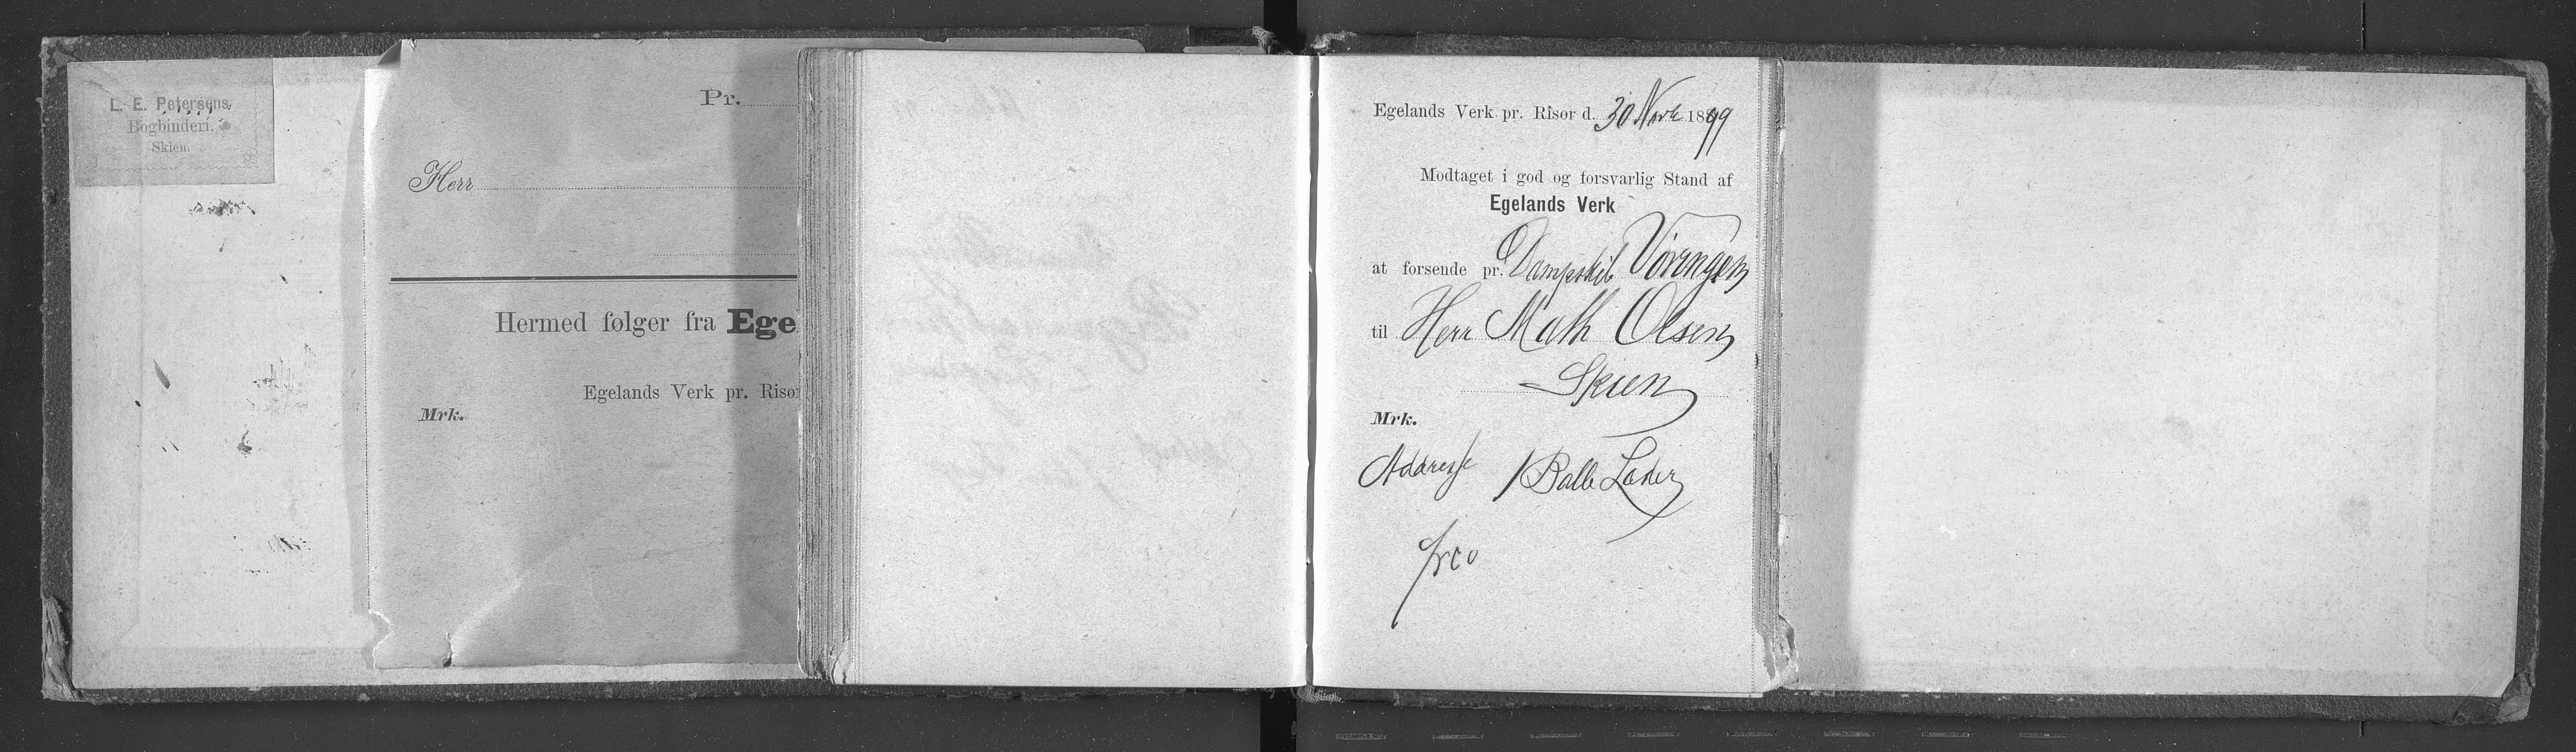 L. E. Petersens
Bogbinderi,
Skien.
Pr.
Herr
Hermed følger fra Ege
Egelands Verk pr. Risor
Mrk.
Egelands Verk pr. Risor d. 30 Novb 1899
Modtaget i god og forsvarlig Stand af
Egelands Verk
at forsende pr. Dampskib Vøringen
til Herr Math Olsen
Skien
Mrk.
Adresse 1 Balle Læder
frco